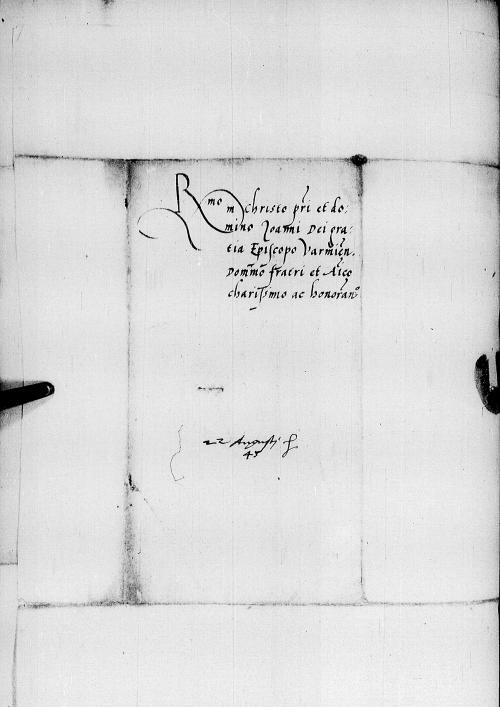 Rmo in Christo pri et do:
mino Joanni Dei gra:
tia Episcopo Varmien.
Domino fratri et Aico
charissimo ac honoran.
22 Augusti
45